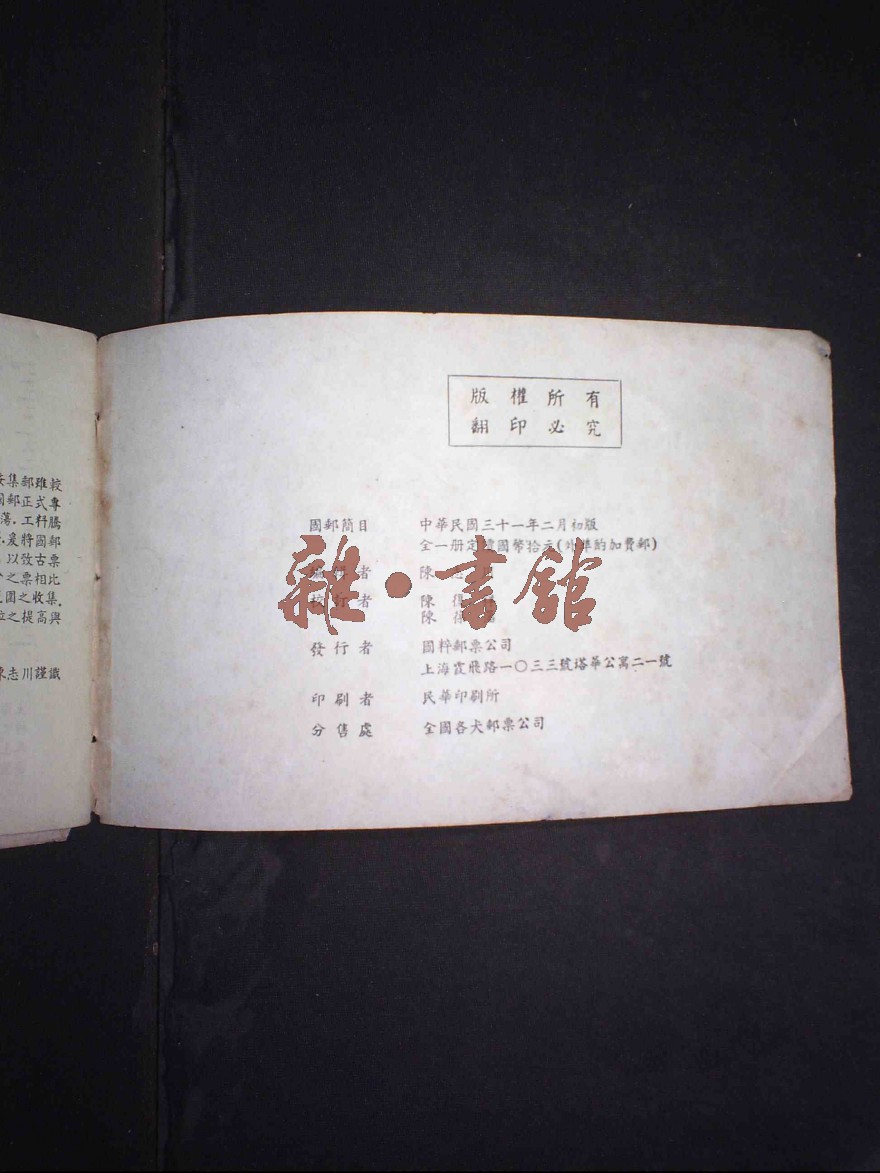 版權所有
翻印必究
國郵簡目 中華民國三十一年二月初版
全一册定價國幣拾元(外埠酌加費郵)
者 陳志
校訂者 陳
陳葆
發行者 國粹郵票公司
上海霞飛路一〇三三號塔華公寓二一號
印刷者 民華印刷所
分售處 全國各大郵票公司
集郵雖較
郵正式專
蕩.工料騰
.爰將國郵
.以攷古票
之票相比
圍之收集.
之提高與
陳志川謹識
雜·書館